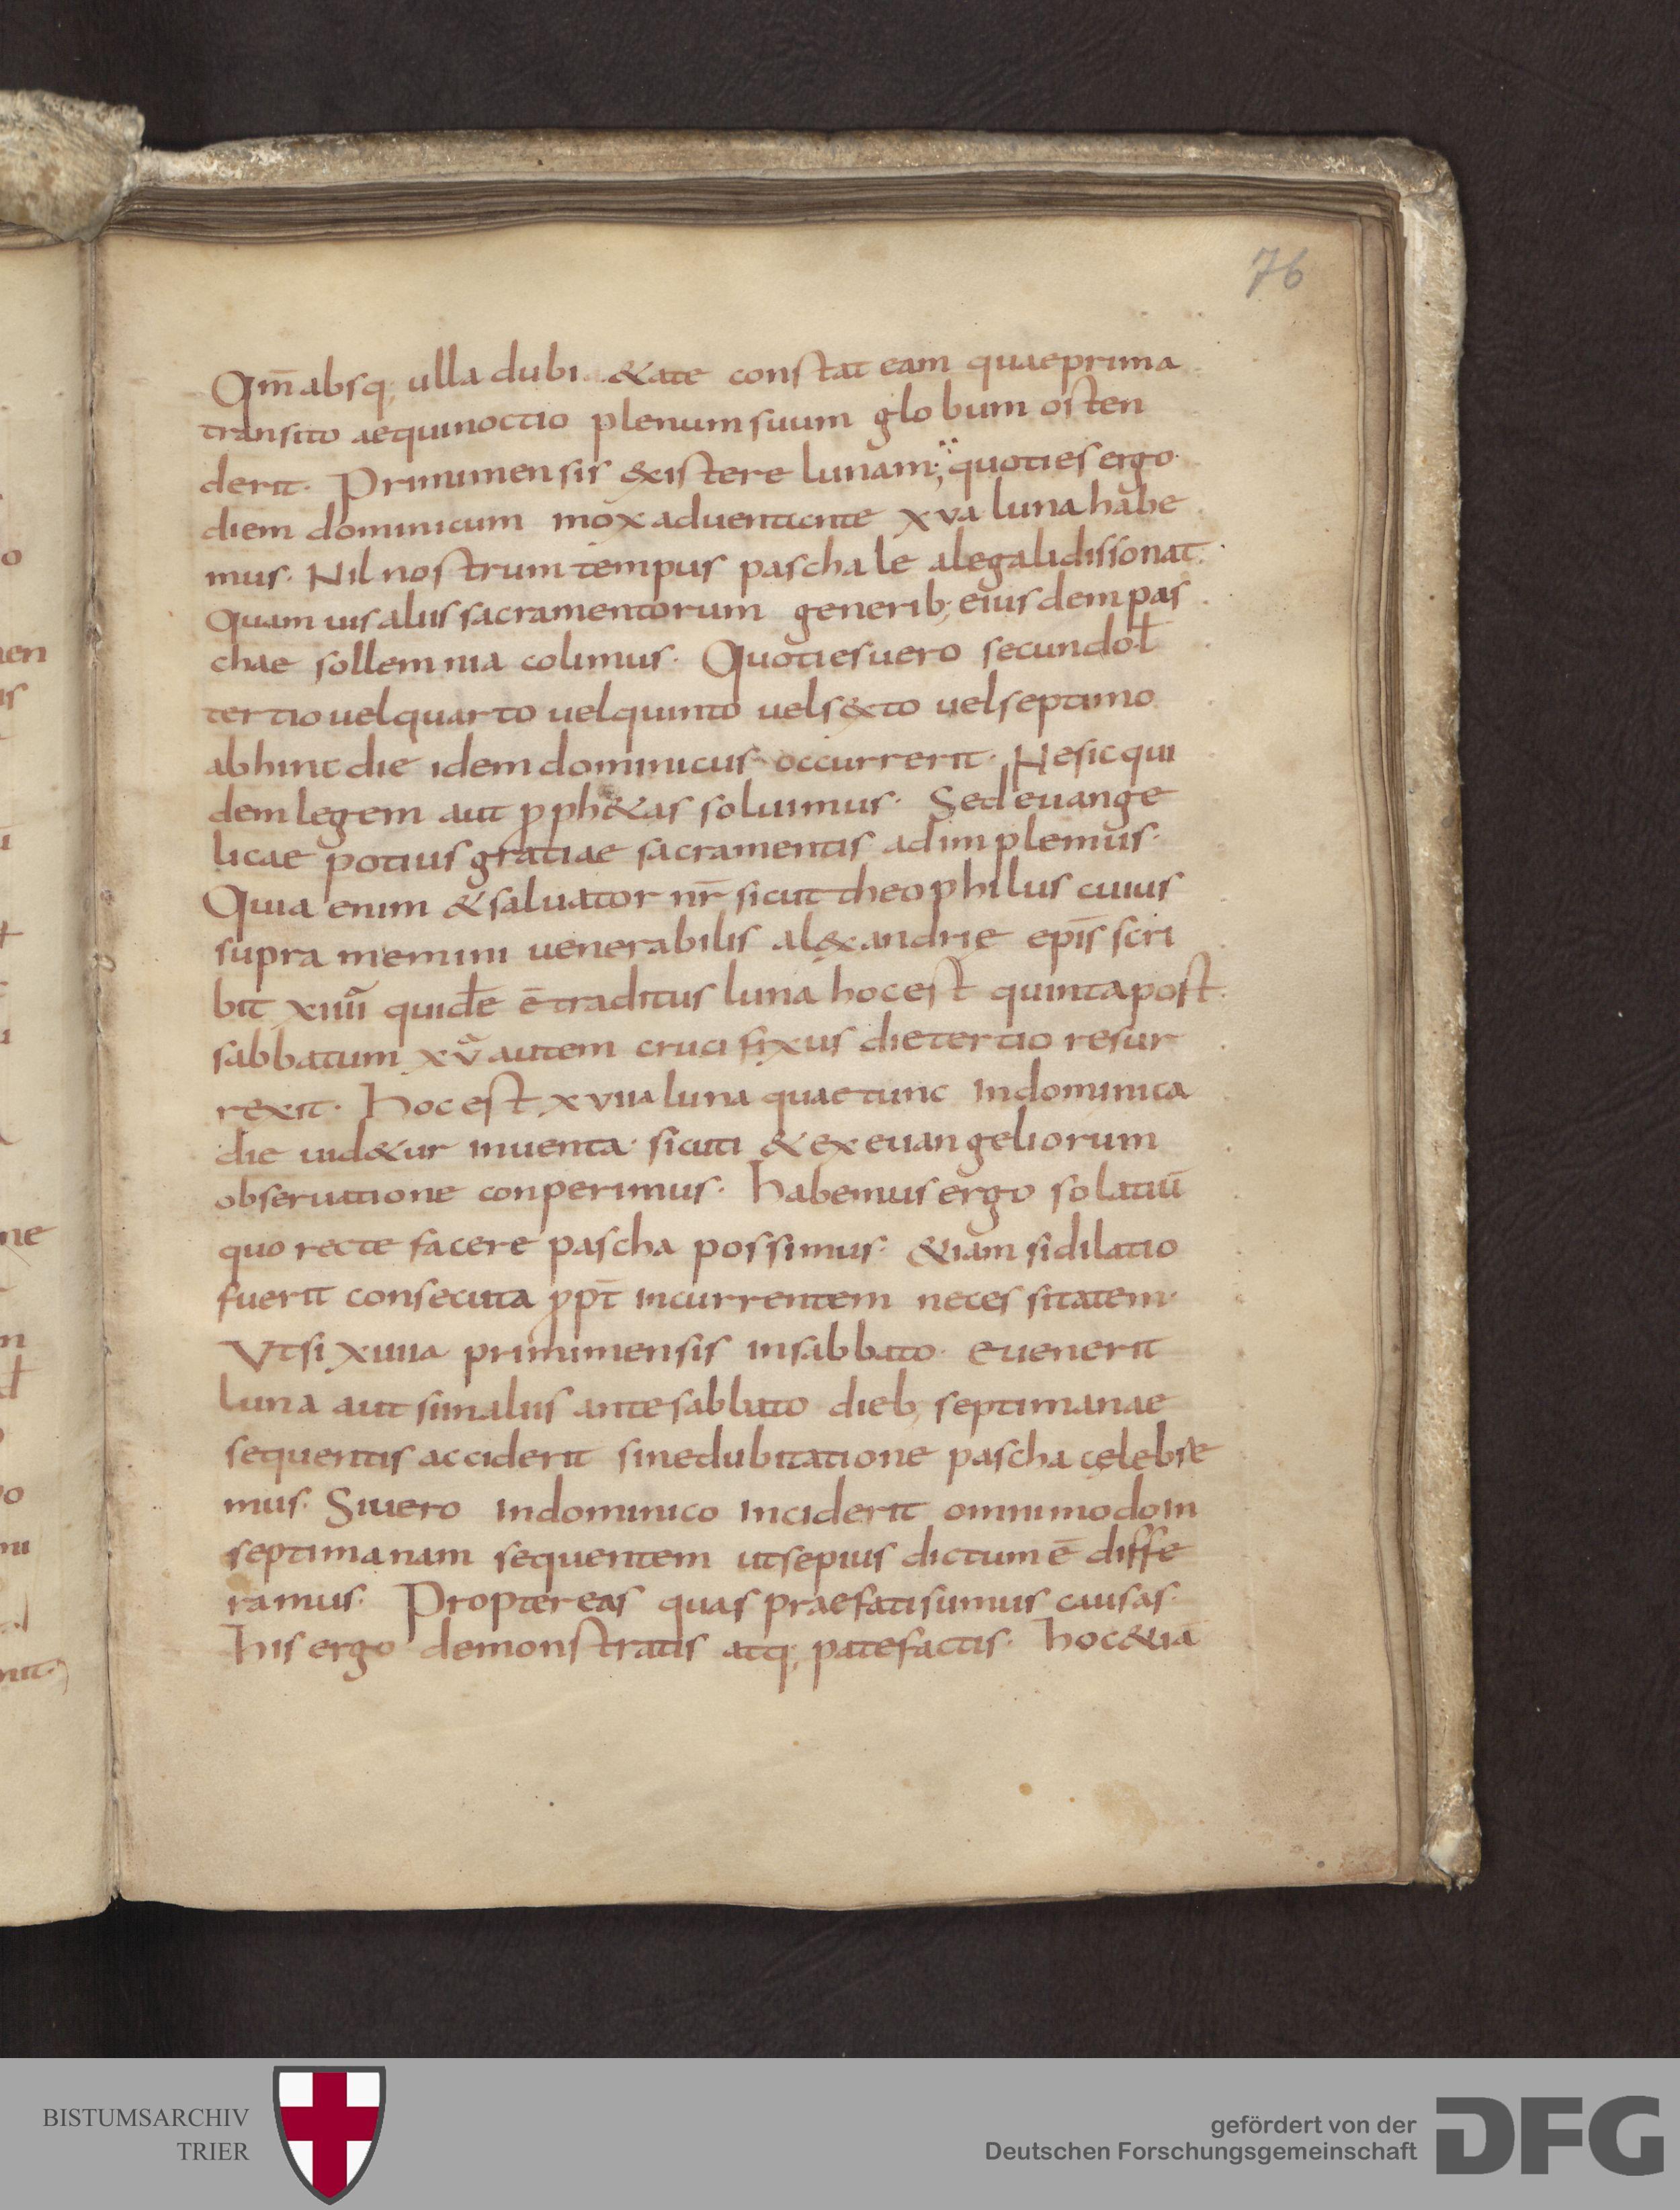 76
Qm̄ absq; ulla dubi &ate constat eam quae prima
transito aequinoctio plenum suum globum osten
derit. Primi mensis existere lunam; quoties ergo
diem dominicum mox adueniente xva luna habe
mus. Nil nostrum tempus paschale a legali dissonat.
Quam uis aliis sacramentorum generib; eiusdem pas
chae sollemnia colimus. Quoties uero secundo ł
tertio uel quarto uel quinto uel s&to uel septimo
ab hinc die idem dominicus occurrerit. Ne sic qui
dem legem aut pph&as soluimus. Sed euange
licae potius gratiae sacramentis adimplemus.
Quia enim & saluator nr̄ sicut theophilus cuius
supra memini uenerabilis al&andrię epīs scri
bit xiiii quidē ē traditus luna hoc est quinta post
sabbatum xv autem crucifixus die tertio resur
rexit. Hoc est xviia luna quae tunc in dominica
die uid&ur inuenta. sicuti & ex euangeliorum
obseruatione conperimus. Habemus ergo solatiū
quo recte facere pascha possimus. &iam si dilatio
fuerit consecuta ppt̄ incurrentem necessitatem.
Vt si xiiiia primi mensis in sabbato. euenerit
luna aut si in aliis ante sabbato dieb; septimanae
sequentis acciderit sine dubitatione pascha celebre
mus. Si uero in dominico inciderit omnimodo in
septimanam sequentem ut sepius dictum ē diffe
ramus. Propter eas quas praefati sumus causas.
His ergo demonstratis atq; patefactis. hoc &iā
BISTUMSARCHIV
TRIER
gefördert von der
Deutschen Forschungsgemeinschaft
DFG